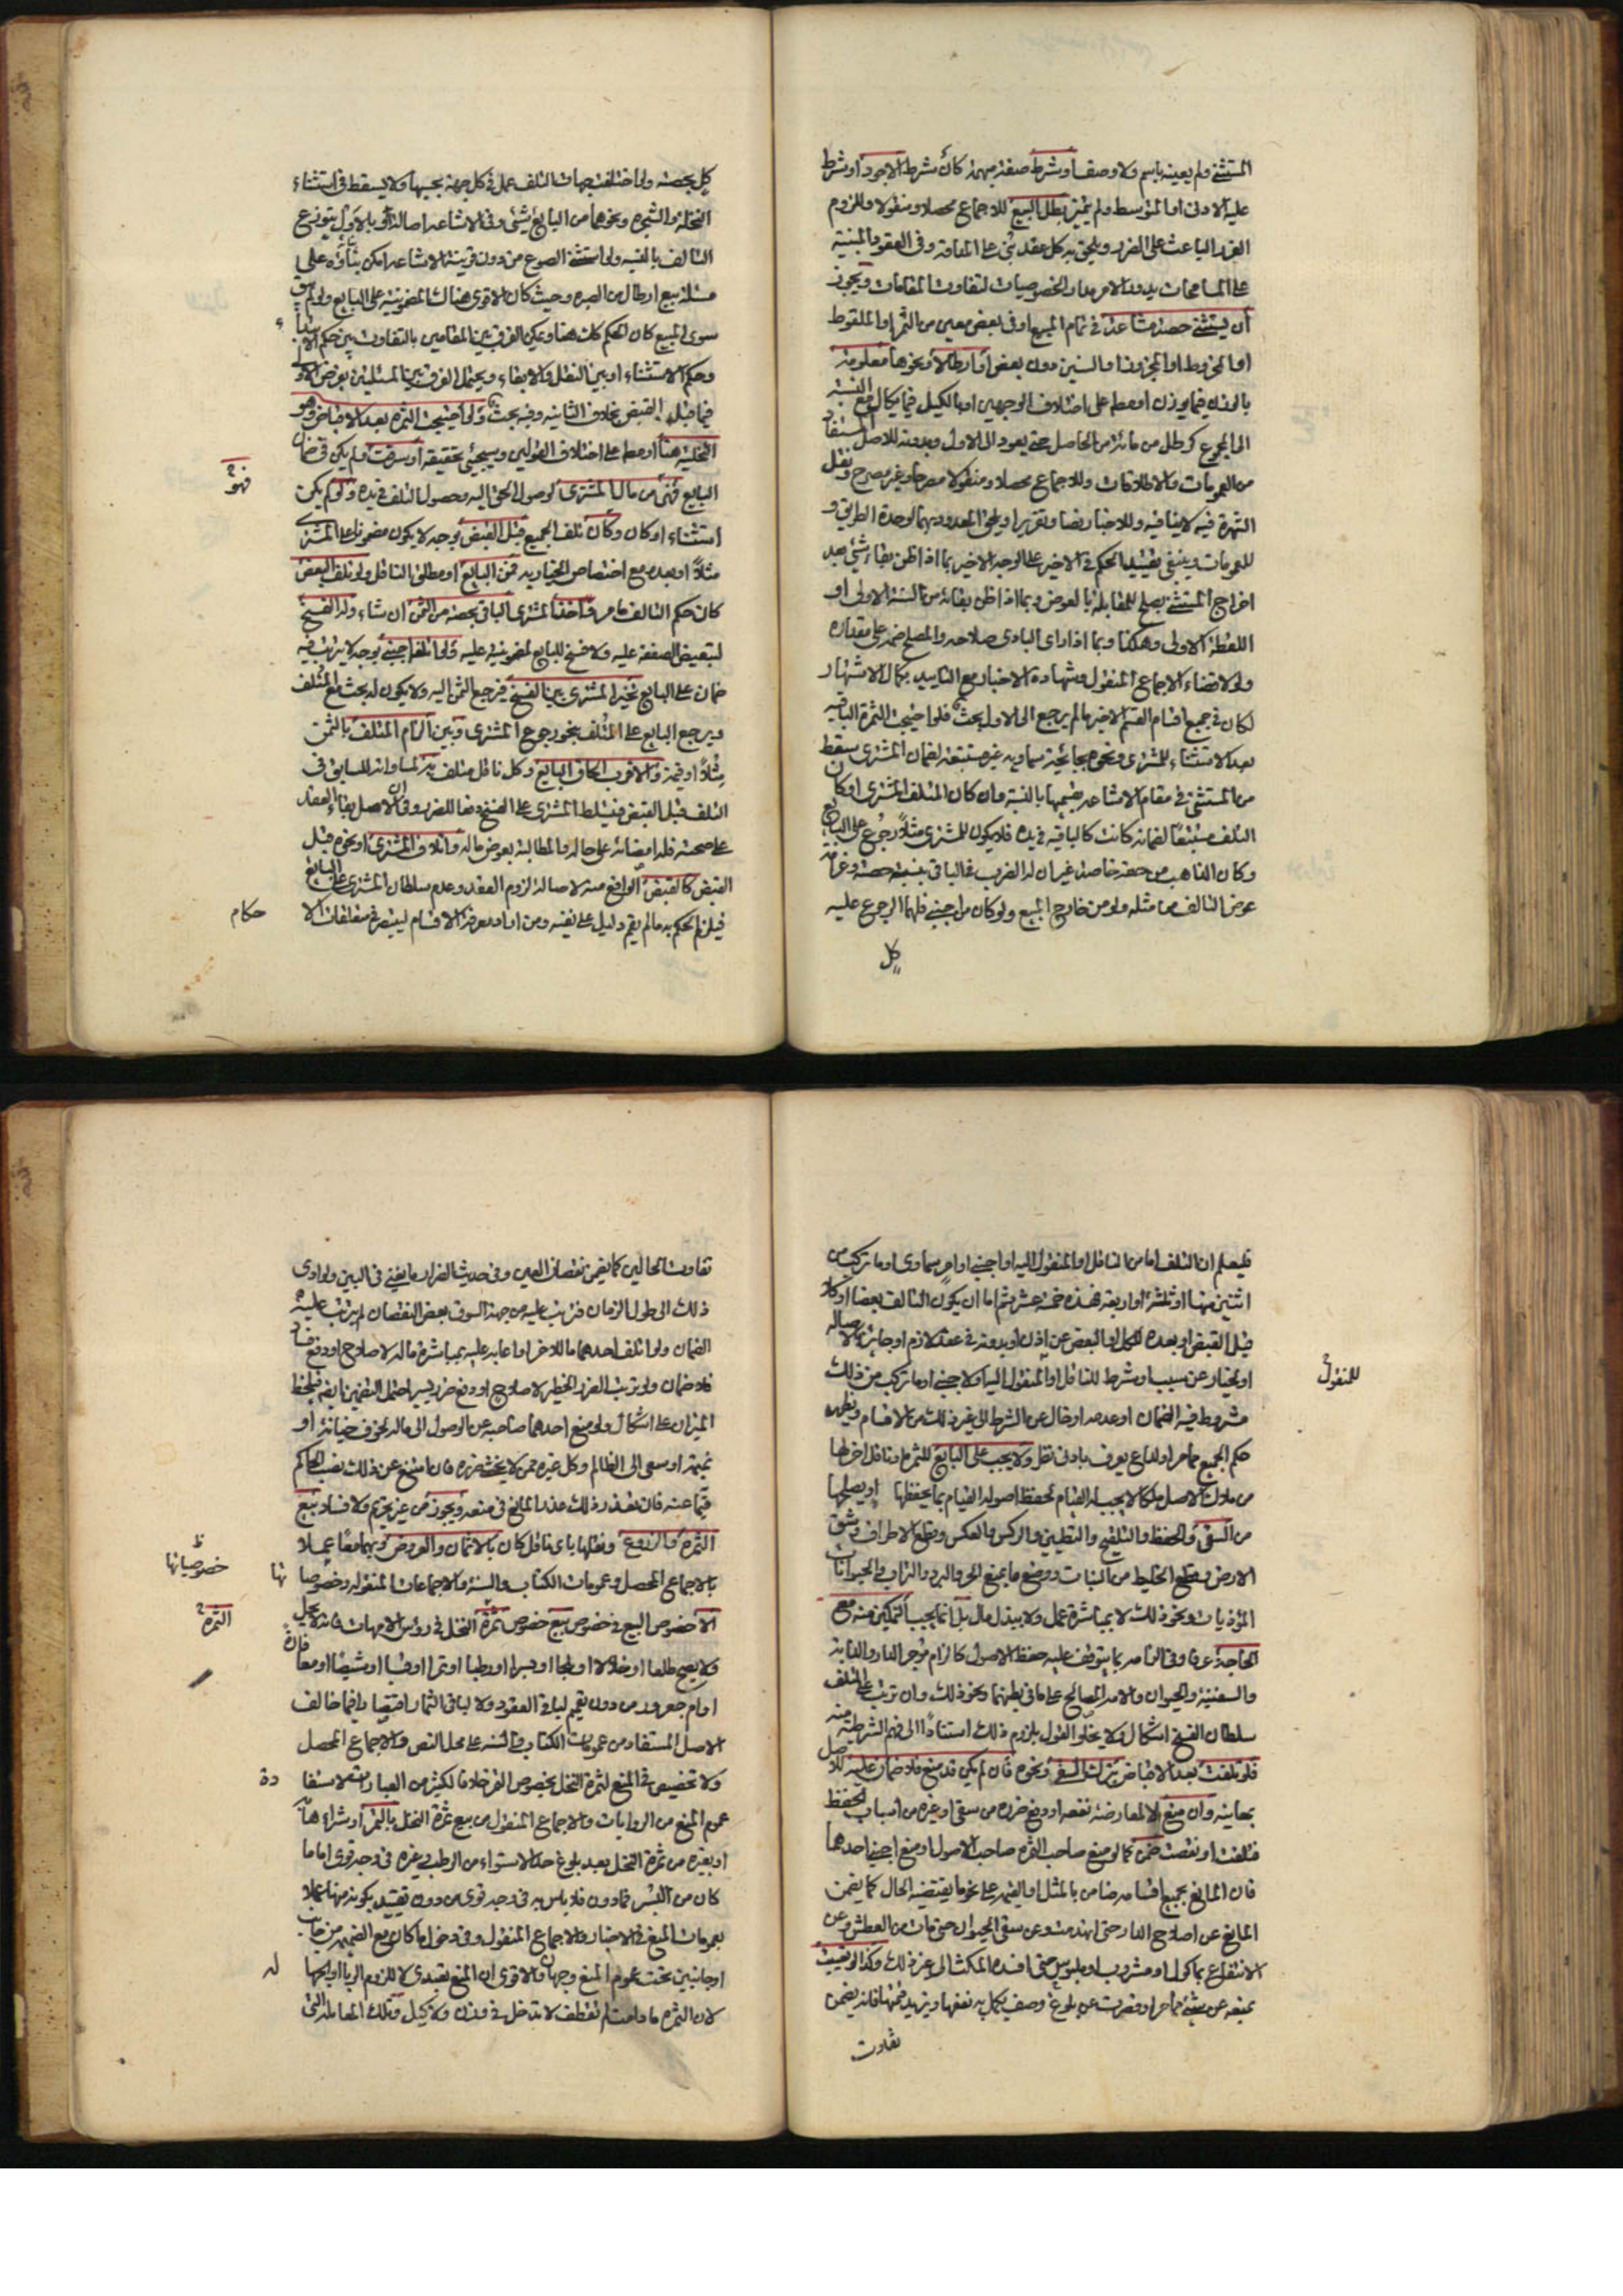 المستثنى ولم يعينه باسم ولا وصف او شرط صفة مبهمة كأن شرط الاجود او شرط
عليه الادنى او المتوسط ولم يميز بطل البيع للاجماع محصلا ومنقولا وللزوم
الغرر الباعث على الضرر ويلحق به كل عقد بني على المداقة وفي العقود المبنية
على المسامحات يدور الامر مدار الخصوصيات لتفاوت المقامات ويجوز
أن يستثني حصة مشاعة في تمام المبيع او في بعض معين من الثمر او الملقوط
او المخروط او المجزوز او السنين دون بعض او ارطالا ونحوها معلومة
بالوزن فيما يوزن او مطلقا على اختلاف الوجهين او بالكيل فيما يكال مع النسبة
الى المجموع كرطل من مائة من الحاصل حتى يعود الى الاول وبدونه للاصل المستفاد
من العمومات والاطلاقات وللاجماع محصلا ومنقولا مصرحا وغير مصرح ونقل
الشهرة فيه لا ينافيه وللاخبار نصا وتقريرا ويلحق المعدود بهما لوحدة الطريق و
للعمومات وينبغي تقييد الحكم في الاخير على الوجه الاخير بما اذا ظن بقاء شيء بعد
اخراج المستثنى يصلح للمقابلة بالعوض وبما اذا ظن بقائه من السنة الاولى او
اللقطة الاولى وهكذا وبما اذا اراد البادي صلاحه والمصلح ضمه على مقداره
ولولا قضاء الاجماع المنقول وشهادة الاخبار مع التاييد بكمال الاشتهار
لكان في جميع اقسام القسم الاخير ما لم يرجع الى الاول بحث فلو اجتيحت الثمرة الباقية
بعد الاستثناء للمشتري ونحوه بجائحة سماوية غير مستتبعة لضمان المشتري سقط
من المستثنى في مقام الاشاعة بقسميها بالنسبة وان كان المتلف المشتري او كان
التلف مستتبعا لضمانه كانت كالباقية في يده فلا يكون للمشتري مثلا رجوع على البايع
وكان الذاهب من حصته خاصة غير ان له الضرب في الباقي بنسبة حصته وغرامة
عوض التالف من مثله ولو من خارج المبيع ولو كان من اجنبي فلهما الرجوع عليه
كل
كل بحصته ولو اختلفت جهات التلف عمل في كل جهة بحسبها ولا يسقط في استثناء
النخلة والشجرة ونحوها من البايع شيء وفي الاشاعة اصالة او بالاول يتوزع
التالف بالنسبة ولو استثنى الصوع من دون قرينة الاشاعة امكن بناؤه على
مسئلة بيع ارطال من الصبرة وحيث كان الاقوى هنالك المضمونية على البايع ولو لم يبق
سوى المبيع كان الحكم كذلك هنا ويمكن الفرق بين المقامين بالتفاوت بين حكم الابتداء
وحكم الاستثناء او بين النقل والابقاء ويحتمل الفرق بين المسئلتين بفرض الاولى
فيما قبل القبض بخلاف الثانية وفيه بحث ولو اجتيحت الثمرة بعد الاقباض وهو
التخلية هنا او مطلقا على اختلاف القولين وسيجيئ تحقيقه او سرقت ولم يكن قد ضمن
فهو
البايع فهي من مال المشتري لوصول الحق اليه وحصول التلف في يده ولو لم يكن
استثناء او كان وكان تلف الجميع قبل القبض بوجه لا يكون مضمونا على المشتري
مثلا او بعده مع اختصاص الخيار به فمن البايع او مطلق الناقل ولو تلف البعض
كان حكم التالف ما مر واخذ المشتري الباقي بحصته من الثمن ان شاء وله الفسخ
لتبعيض الصفقة عليه ولا فسخ للبايع لمضمونيته عليه ولو اتلفه اجنبي بوجه لا يترتب فيه
ضمان على البايع تخير المشتري بين الفسخ فيرجع الثمن اليه ولا يكون له بحث مع المتلف
ويرجع البايع على المتلف بنحو رجوع المشتري وبين الزام المتلف بالثمن
مثلا او قيمة والاقرب الحاق البايع وكل ناقل متلف به لمساواته للسابق في
التلف قبل القبض فيتسلط المشتري على الفسخ دفعا للضرر وفي ان الاصل بقاء العقد
على صحته فله امضائه على حاله والمطالبة بعوض ماله واتلاف المشتري او نحوه قبل
القبض كالقبض الواقع منه لاصالة لزوم العقد وعدم سلطان المشتري على البايع
فيلزم الحكم به ما لم يقم دليل على نفيه ومن اراد معرفة الاقسام ليتبصر في متعلقات الا
حكام
فليعلم ان التلف اما من الناقل او المنقول اليه او اجنبي او امر سماوي او ما تركب من
اثنين منها او ثلثة او اربعة فهذه خمسة عشر ثم اما ان يكون التالف بعضا او كلا
قبل القبض او بعده للكل او البعض عن اذن او بدونه في عقد لازم او جائز بالاصالة
او لخيار عن سبب او شرط للناقل او المنقول اليه او لاجنبي او ما تركب من ذلك
للمنقول
مشروط فيه الضمان او عدمه او خال عن الشرط الى غير ذلك من الاقسام ويظهر
حكم الجميع مما مر اولداع يعرف بادنى نقل ولا يجب على البايع للثمر او ناقل اخر لها
من مالك الاصل ملكا لا يجب له القيام بحفظ اصوله القيام بما يحفظها او يصلحها
من السقي والحفظ والتلقيح والتطيين والركس والعكس وقطع الاطراف وشق
الارض وقطع الخليط من النبات ووضع ما يمنع الحر والبرد والتراب والحيوانات
المؤذيات ونحو ذلك لا بمباشرة عمل ولا ببذل مال بل انما يجب التمكين منه مع
الحاجة عرفا وفي الناصر بما يتوقف عليه حفظ الاصول كالزام مؤجر الدار والدابة
والسفينة والحيوان والامة المصالح على ما في بطنها ونحو ذلك وان ترتب على التلف
سلطان الفسخ اشكال ولا يخلو القول بلزوم ذلك استنادا الى فهم الشرطية منه
فلو تلفت بعد الاقباض بترك السقي ونحوه فان لم يكن قد منع فلا ضمان عليه للاصل
بمعانيه وان منع لا لمعارضة نفعه او دفع ضرره من سقي او غيره من اسباب الحفظ
فتلفت او نقصت ضمن كما لو منع صاحب الثمرة صاحب الاصول او منع اجنبي احدهما
فان المانع بجميع اقسامه ضامن بالمثل او القيمة على نحو ما يقتضيه الحال كما يضمن
المانع عن اصلاح الدار حتى انهدمت وعن سقي الحيوان حتى مات من العطش وعن
الانتفاع بماكول او مشروب او ملبوس حتى افسده المكث الى غير ذلك وكذا لو تعيبت
بمنعه عن شيء مما مر او قصرت عن بلوغ وصف يكمل به نفعها ويزيد قيمتها فانه يضمن
تفاوت
تفاوت الحالين كما يضمن نقصان العين وفي حديث الضرار ما يغني في البين ولو ادى
ذلك الى طول الزمان فترتب عليه من جهة السوق بعض النقصان لم يترتب عليه
الضمان ولو اتلف احدهما ما للاخر او اعابه عليه بمباشرة ماله لاصلاح او دفع فساد
فلا ضمان ولو ترتب الضرر الخطير لاصلاح او دفع ضرر يسير احتمل التضمين فيلحظ
الميزان على اشكال ولو منع احدهما صاحبه عن الوصول الى ماله لخوف خيانة او
نميمة او سعي الى الظالم وكل غيره ممن لا يخشى ضرره فان امتنع عن ذلك نصب الحاكم
قيما عنه فان تعذر ذلك عذر المانع في منعه ويجوز من غير تحريم ولا فساد بيع
الثمرة والزروع ونقلها باي ناقل كان بالاثمان والعروض وبهما معا عملا
بالاجماع المحصل وعمومات الكتاب والسنة والاجماعات المنقولة وخصوصا تها
خصوصياتها ظ
الا خصوص البيع في خصوص بيع خصوص ثمرة النخل في رؤس الامهات فانه لا يحل
الثمرة
ولا يصح طلعا او خلالا او بلحا او بسرا او رطبا او تمرا او قسبا او شيصا او معافارة
او ام جعرور من دون تعميم لباقي العقود ولا لباقي الثمار اقتصارا فيما خالف
الاصل المستفاد من عمومات الكتاب والسنة على محل النص والاجماع المحصل
ولا تخصيص في المنع لثمرة النخل بخصوص التمر خلافا لكثير من العبارات لاستفا
دة
عموم المنع من الروايات والاجماع المنقول من بيع ثمرة النخل بالتمر او شرائها
او بغيره من ثمرة النخل بعد بلوغ حد الاستواء من الرطب وغيره في وجه قوي اما ما
كان من البسر فما دون فلا باس به في وجه قوي من دون تقييد بكونه منها عملا
بعمومات المنع في الاخبار والاجماع المنقول وفي دخول ما كان مع الضميمة من جانب
او جانبين تحت عموم المنع وجهان والاقوى ان المنع تعبدي لا للزوم الربا او الجهالة
لان الثمرة ما دامت لم تقطف لا تدخل في وزن ولا كيل وتلك المعاملة التي